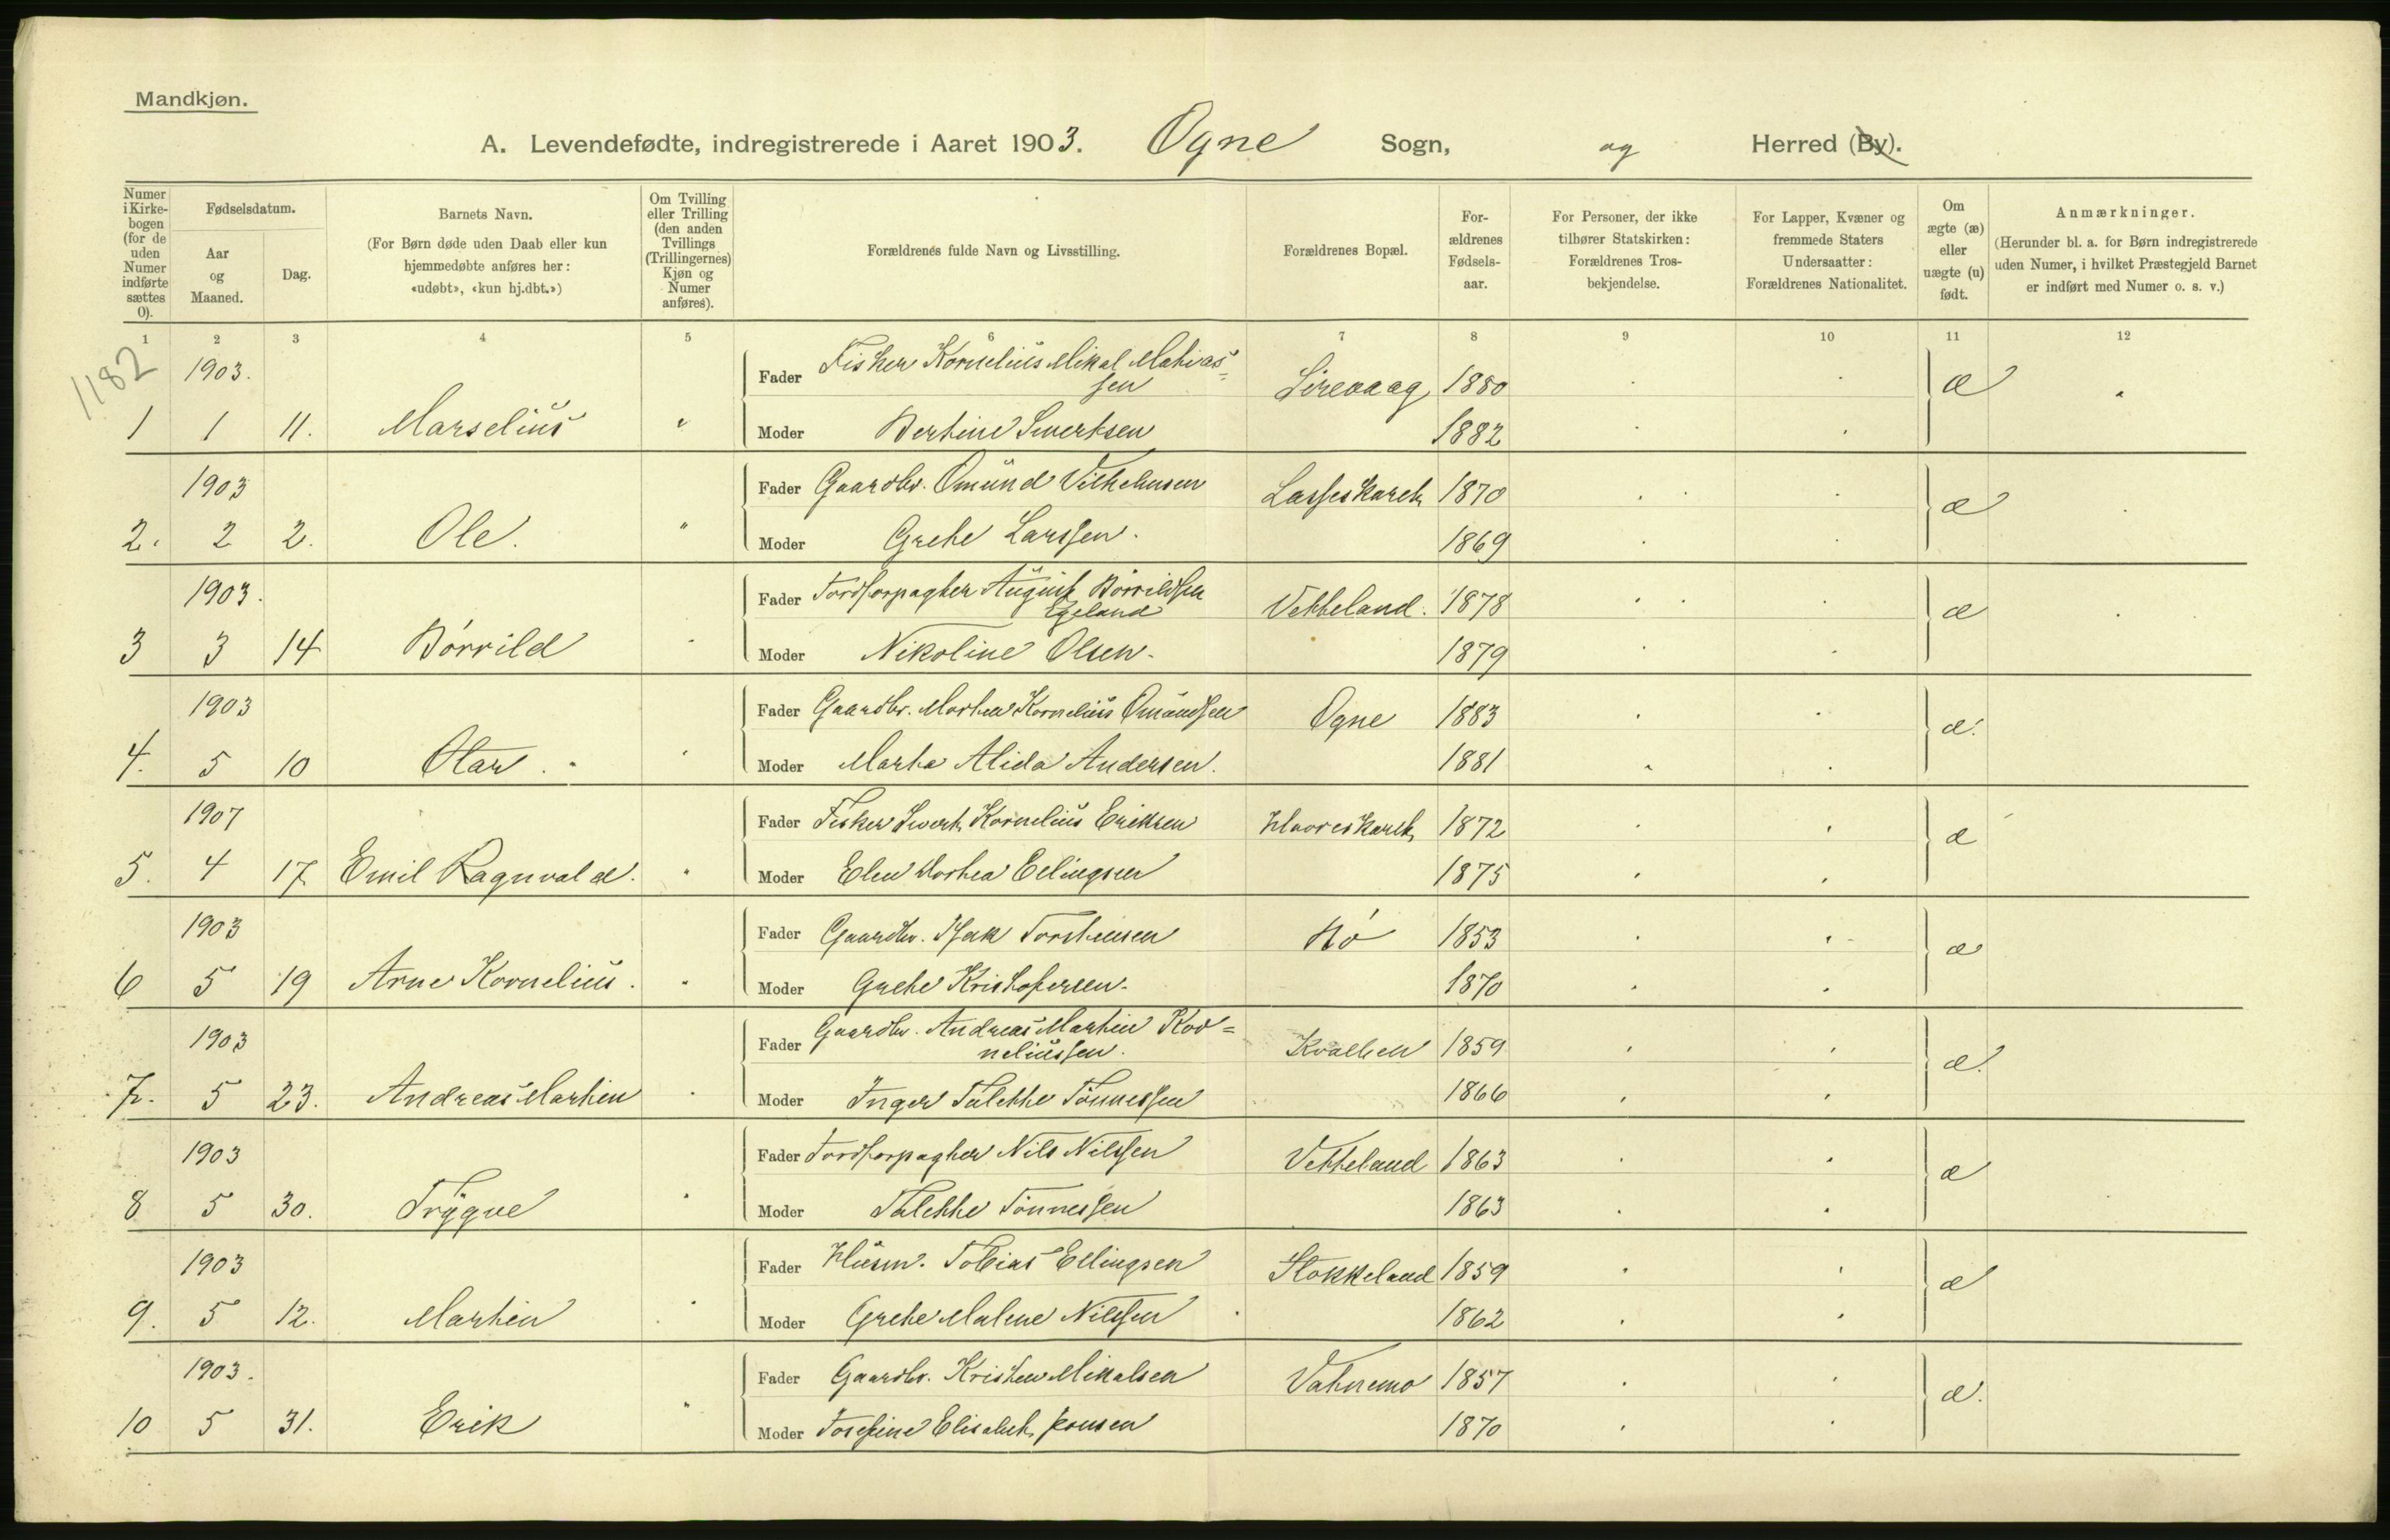 Mandkjøn.
A. Levendefødte, indregistrerede i Aaret 1903. Ogne Sogn, og Herred (By).
Numer i Kirke- bogen (for de uden Numer indførte sættes 0).
Fødselsdatum.
Aar og Maaned.
Dag.
Barnets Navn.
(For Børn døde uden Daab eller kun hjemmedøbte anføres her: «udøbt», «kun hj.dbt.»)
Om Tvilling eller Trilling (den anden Tvillings (Trillingernes) Kjøn og Numer anføres).
Forældrenes fulde Navn og Livsstilling.
Forældrenes Bopæl.
For- ældrenes Fødsels- aar.
For Personer, der ikke tilhører Statskirken: Forældrenes Tros- bekjendelse.
For Lapper, Kvæner og fremmede Staters Undersaatter: Forældrenes Nationalitet.
Om ægte (æ) eller uægte (u) født.
Anmærkninger.
(Herunder bl. a. for Børn indregistrerede uden Numer, i hvilket Præstegjeld Barnet er indført med Numer o. s. v.)
1 2 3 4 5 6 7 8 9 10 11 12
1182
1903. Fader Fisker Kornelius Mikal Mathias=
sen Sirevaag 1880 æ
1 1 11. Marselius " Moder Bertine Sivertsen 1882
1903 Fader Gaardbr. Omund Vilhelmsen Lasseskareth 1870 æ
2. 2 2. Ole. " Moder Grethe Larssen. 1869
1903. Fader Jordforpagter August Børrildsen
Egeland Vetteland. 1878 æ
3 3 14 Børrild " Moder Nikoline Olsen. 1879
1903 Fader Gaardbr. Morten Kornelius Omundsen Ogne 1883 æ.
4. 5 10 Otar. " Moder Marta Alida Andersen. 1881
1907 Fader Fisker Sivert Kornelius Eriksen Havreskareth 1872 æ
5. 4 17 Emil Ragnvald. " Moder Elen Dorthea Erlingsen 1875
1903 Fader Gaardbr. Isak Torstensen Bø 1853 æ
6 5 19 Arne Kornelius. " Moder Grethe Kristofersen. 1870
1903 Fader Gaardbr. Andreas Martin Kor=
neliussen. Kvalben 1859 æ.
7. 5 23. Andreas Martin " Moder Inger Talette Tønnessen 1866
1903 Fader Jordforpagter Nils Nilssen Vetteland 1863 æ
8 5 30. Trygve " Moder Talette Tønnessen 1863
1903 Fader Husm. Tobias Ellingsen Stokkeland 1859 æ
9. 5 12. Martin " Moder Grethe Malene Nilssen 1862
1903. Fader Gaardbr. Kristen Mikalsen Vatnemo 1857 æ.
10 5 31. Erik " Moder Josefine Elisabeth Jonsen 1870